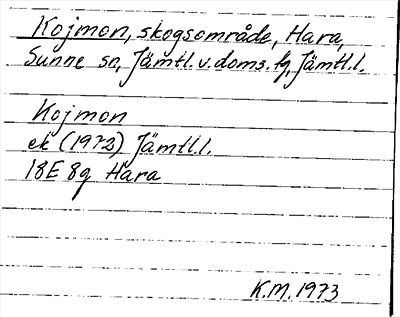 Kojmon, skogsområde, Hara,
Sunne sn, Jämtl.v.doms.fg, Jämtl.l.
Kojmon
ek (1972) Jämtl.l.
18E 8g Hara
K.M.1973